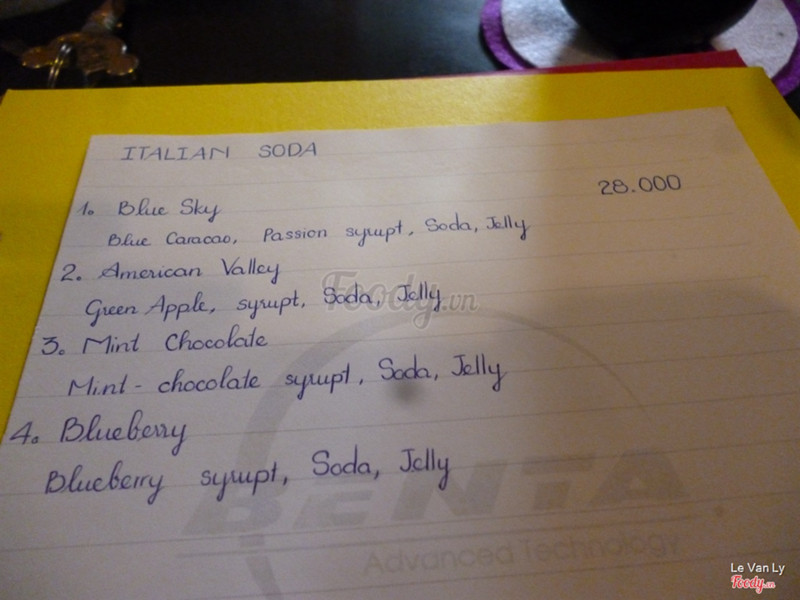 ITALIAN SODA
28.000
1. Blue Sky
Blue Caracao, Passion syrupt, Soda, Jelly
2. American Valley
Green Apple, syrupt, Soda, Jelly
Foody.vn
3. Mint Chocolate
Mint - chocolate syrupt, Soda, Jelly
4. Blueberry
Blueberry syrupt, Soda, Jelly
BENTA
Advanced Technology
Le Van Ly
Foody.vn